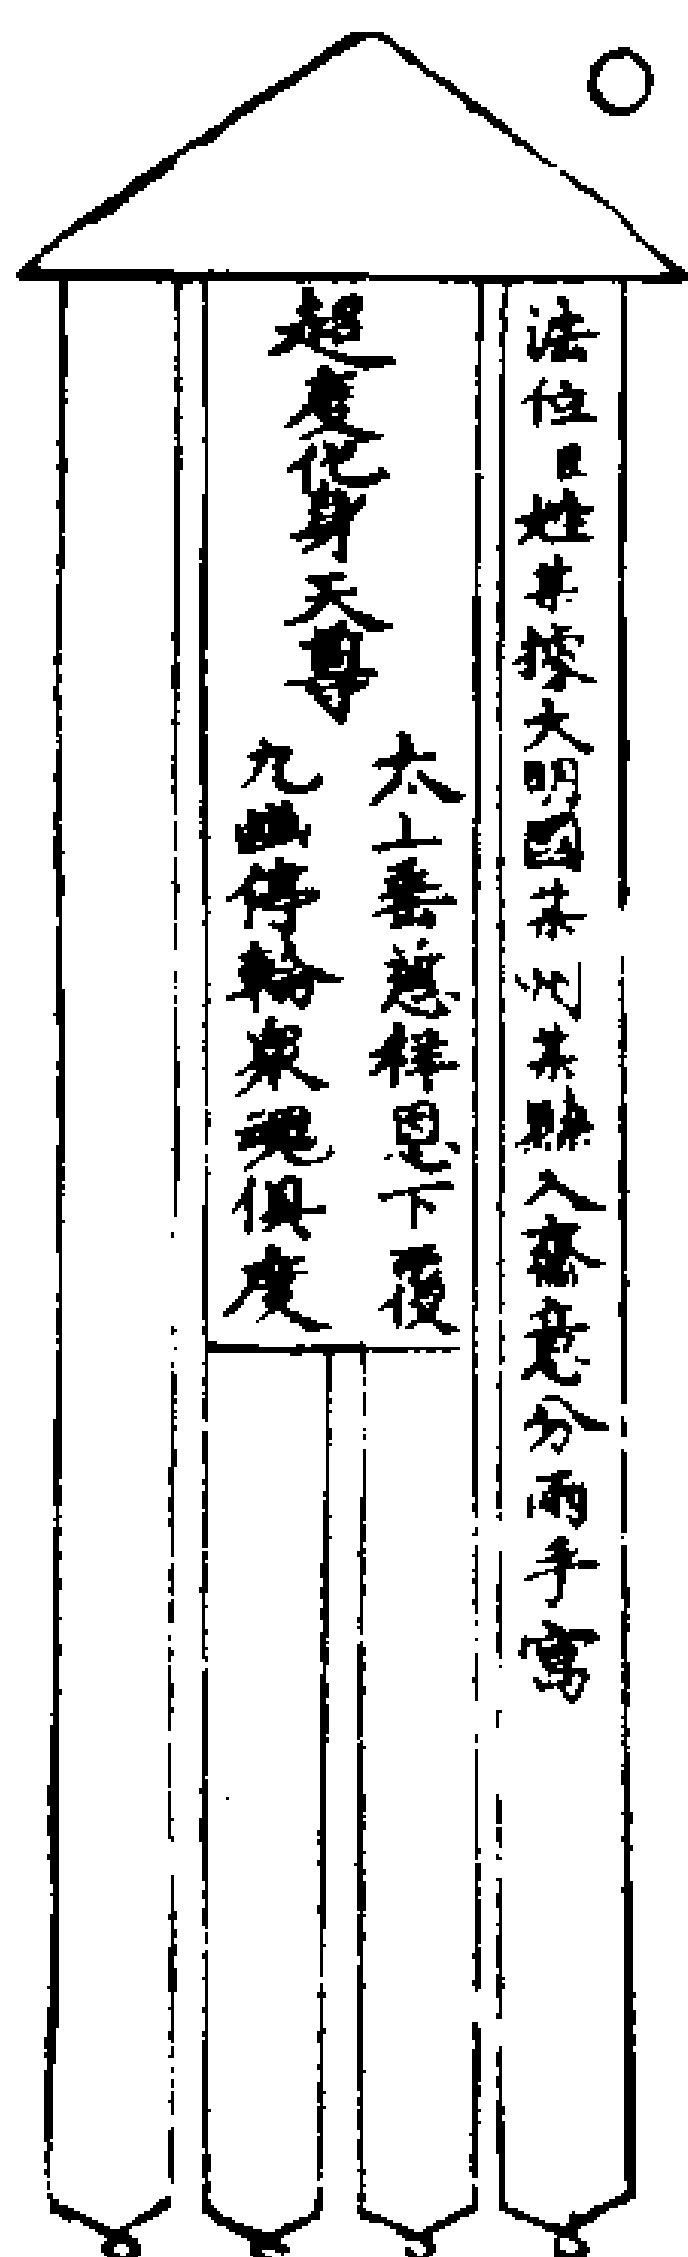 法位臣姓某據大明國某州某縣入齋意分兩手寫
超度化身天尊
太上垂慈釋恩下覆
九幽停輪衆魂俱度